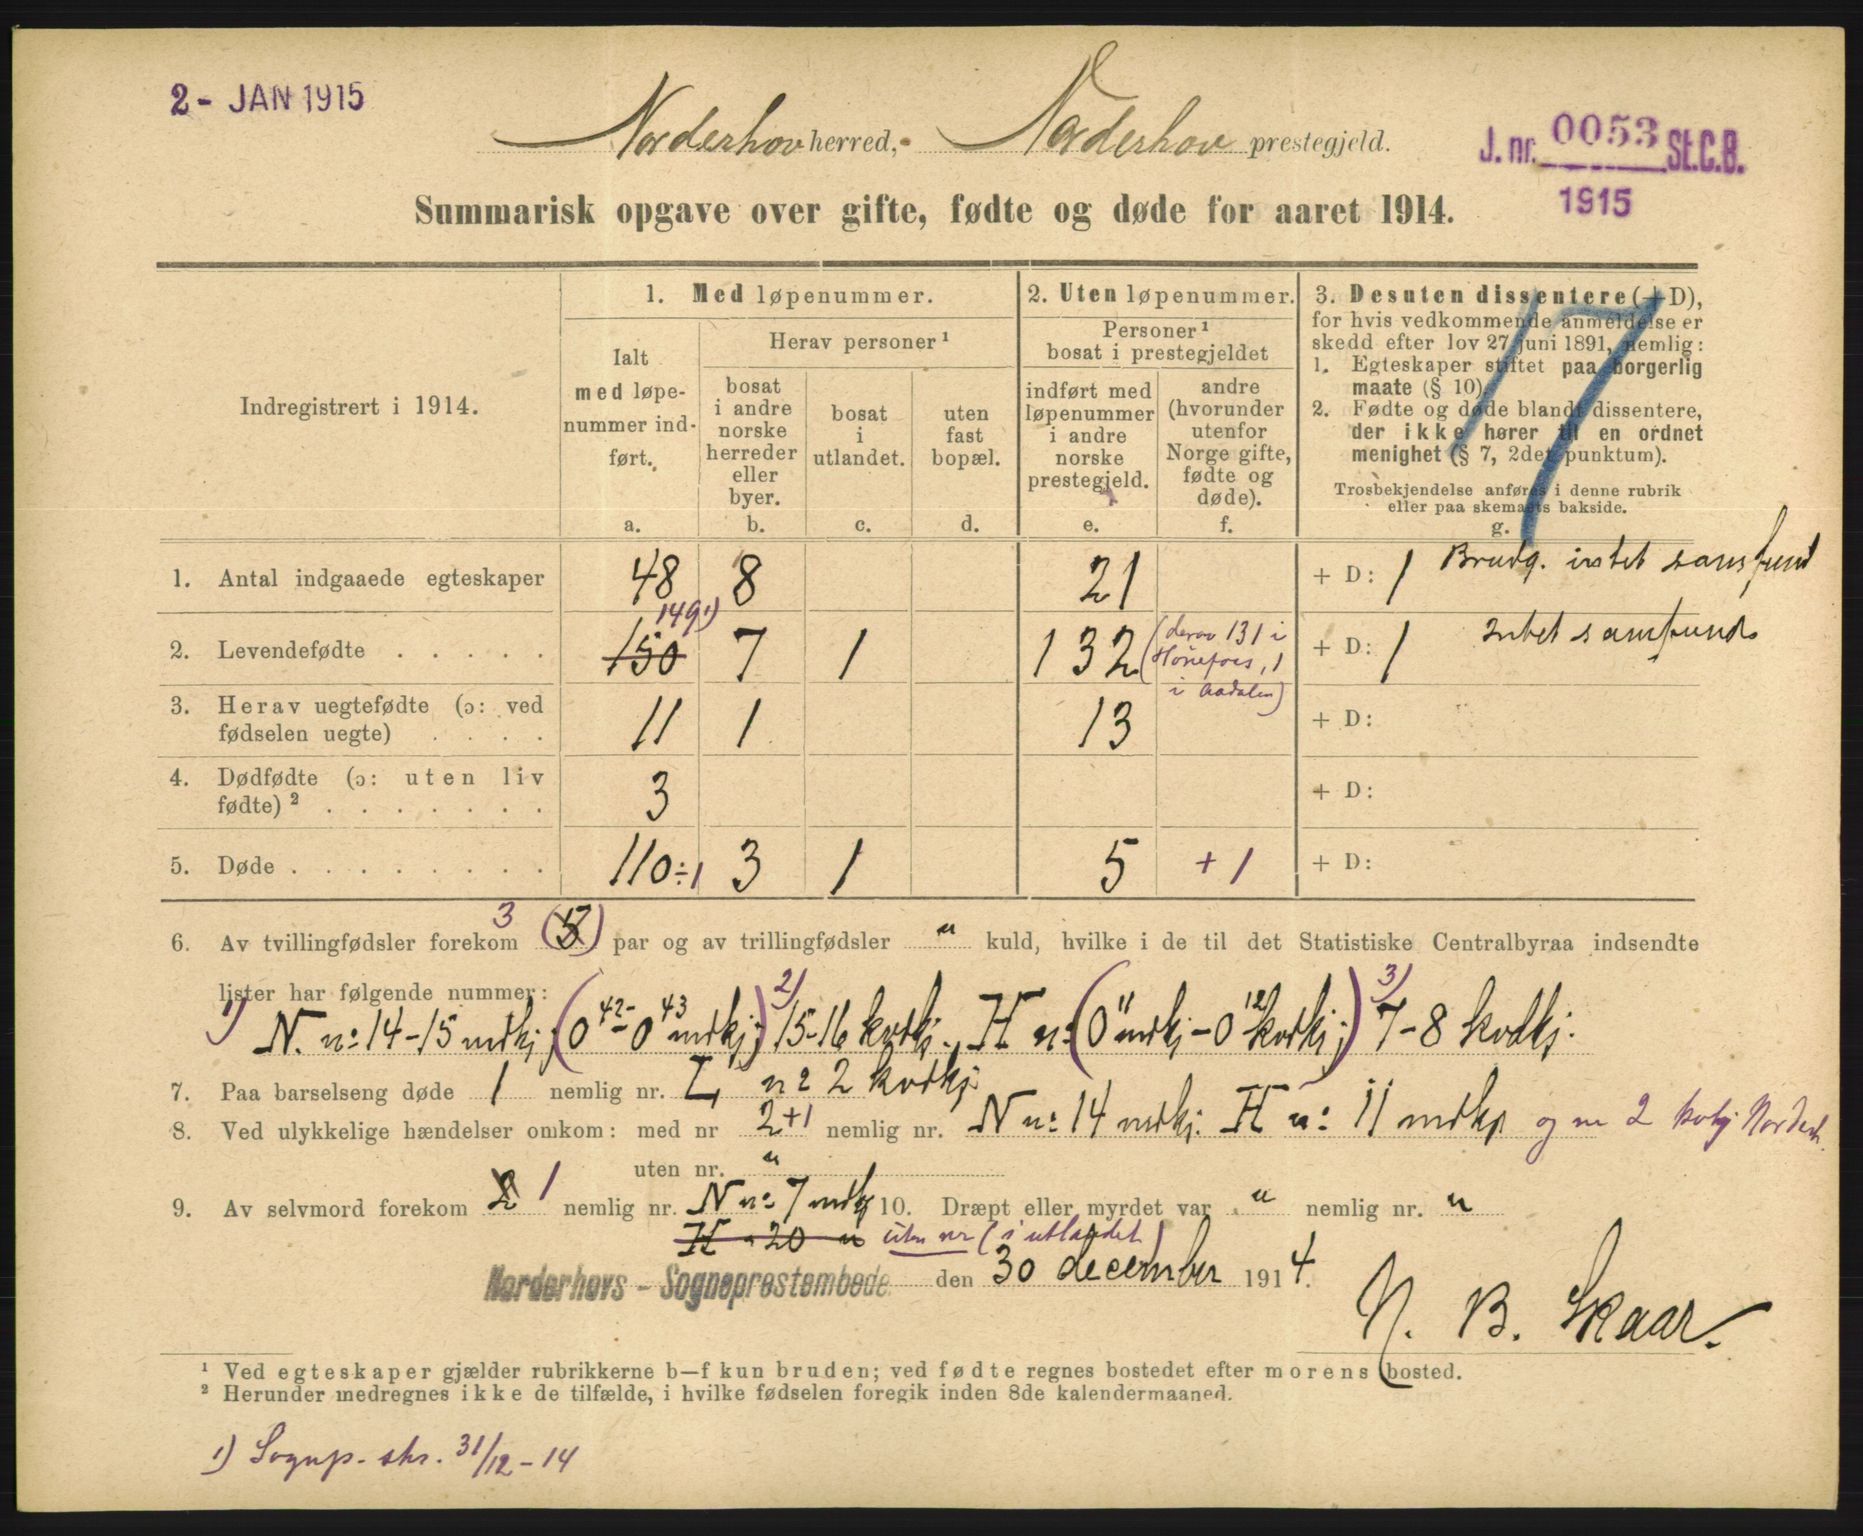 2 - JAN 1915
Norderhov herred, - Norderhov prestegjeld.
J. nr. 0053 St.C.B.
1915
Summarisk opgave over gifte, fødte og døde for aaret 1914.
Indregistrert i 1914.
1. Med løpenummer.
Ialt
med løpe-
nummer ind-
ført.
a.
Herav personer ¹
bosat
i andre
norske
herreder
eller
byer.
b.
bosat
i
utlandet.
c.
uten
fast
bopæl.
d.
2. Uten løpenummer.
Personer ¹
bosat i prestegjeldet
indført med
løpenummer
i andre
norske
prestegjeld.
e.
andre
(hvorunder
utenfor
Norge gifte,
fødte og
døde).
f.
3. Desuten dissentere (+ D),
for hvis vedkommende anmeldelse er
skedd efter lov 27 juni 1891, nemlig:
1. Egteskaper stiftet paa borgerlig
maate (§ 10).
2. Fødte og døde blandt dissentere,
der ikke hører til en ordnet
menighet (§ 7, 2det punktum).
Trosbekjendelse anføres i denne rubrik
eller paa skemaets bakside.
g.
17
1. Antal indgaaede egteskaper 48 8 21 + D: 1 Brudg. intet samfund
149 1)
2. Levendefødte . . . . . 150 7 1 132 (derav 131 i Hønefoss, 1 i Aadalen) + D: 1 Intet samfund
3. Herav uegtefødte (ɔ: ved
fødselen uegte) . . . . 11 1 13 + D:
4. Dødfødte (ɔ: uten liv
fødte) ² . . . . . . . 3 + D:
5. Døde . . . . . . . . 110 ÷1 3 1 5 + 1 + D:
6. Av tvillingfødsler forekom 3 (5) par og av trillingfødsler " kuld, hvilke i de til det Statistiske Centralbyraa indsendte
lister har følgende nummer:
1) N. nº 14-15 mdkj; (0 42 - 0 43 mdkj;) 2) 15-16 kvdkj., H nº (0 11 mdkj - 0 12 kvdkj;) 3) 7-8 kvdkj.
7. Paa barselseng døde 1 nemlig nr. L nº 2 kvdkj.
8. Ved ulykkelige hændelser omkom: med nr 2 +1 nemlig nr. N nº 14 mdkj. H nº 11 mdkj og nr 2 kvkj Norderh.
uten nr. "
9. Av selvmord forekom 2 1 nemlig nr. N nº 7 mdkj 10. Dræpt eller myrdet var " nemlig nr. "
H " 20 " uten nr (i utlandet)
Norderhovs - Sogneprestembede den 30 december 1914.
N. B. Skaar.
¹ Ved egteskaper gjælder rubrikkerne b—f kun bruden; ved fødte regnes bostedet efter morens bosted.
² Herunder medregnes ikke de tilfælde, i hvilke fødselen foregik inden 8de kalendermaaned.
1) Sognep. skr. 31/12 - 14